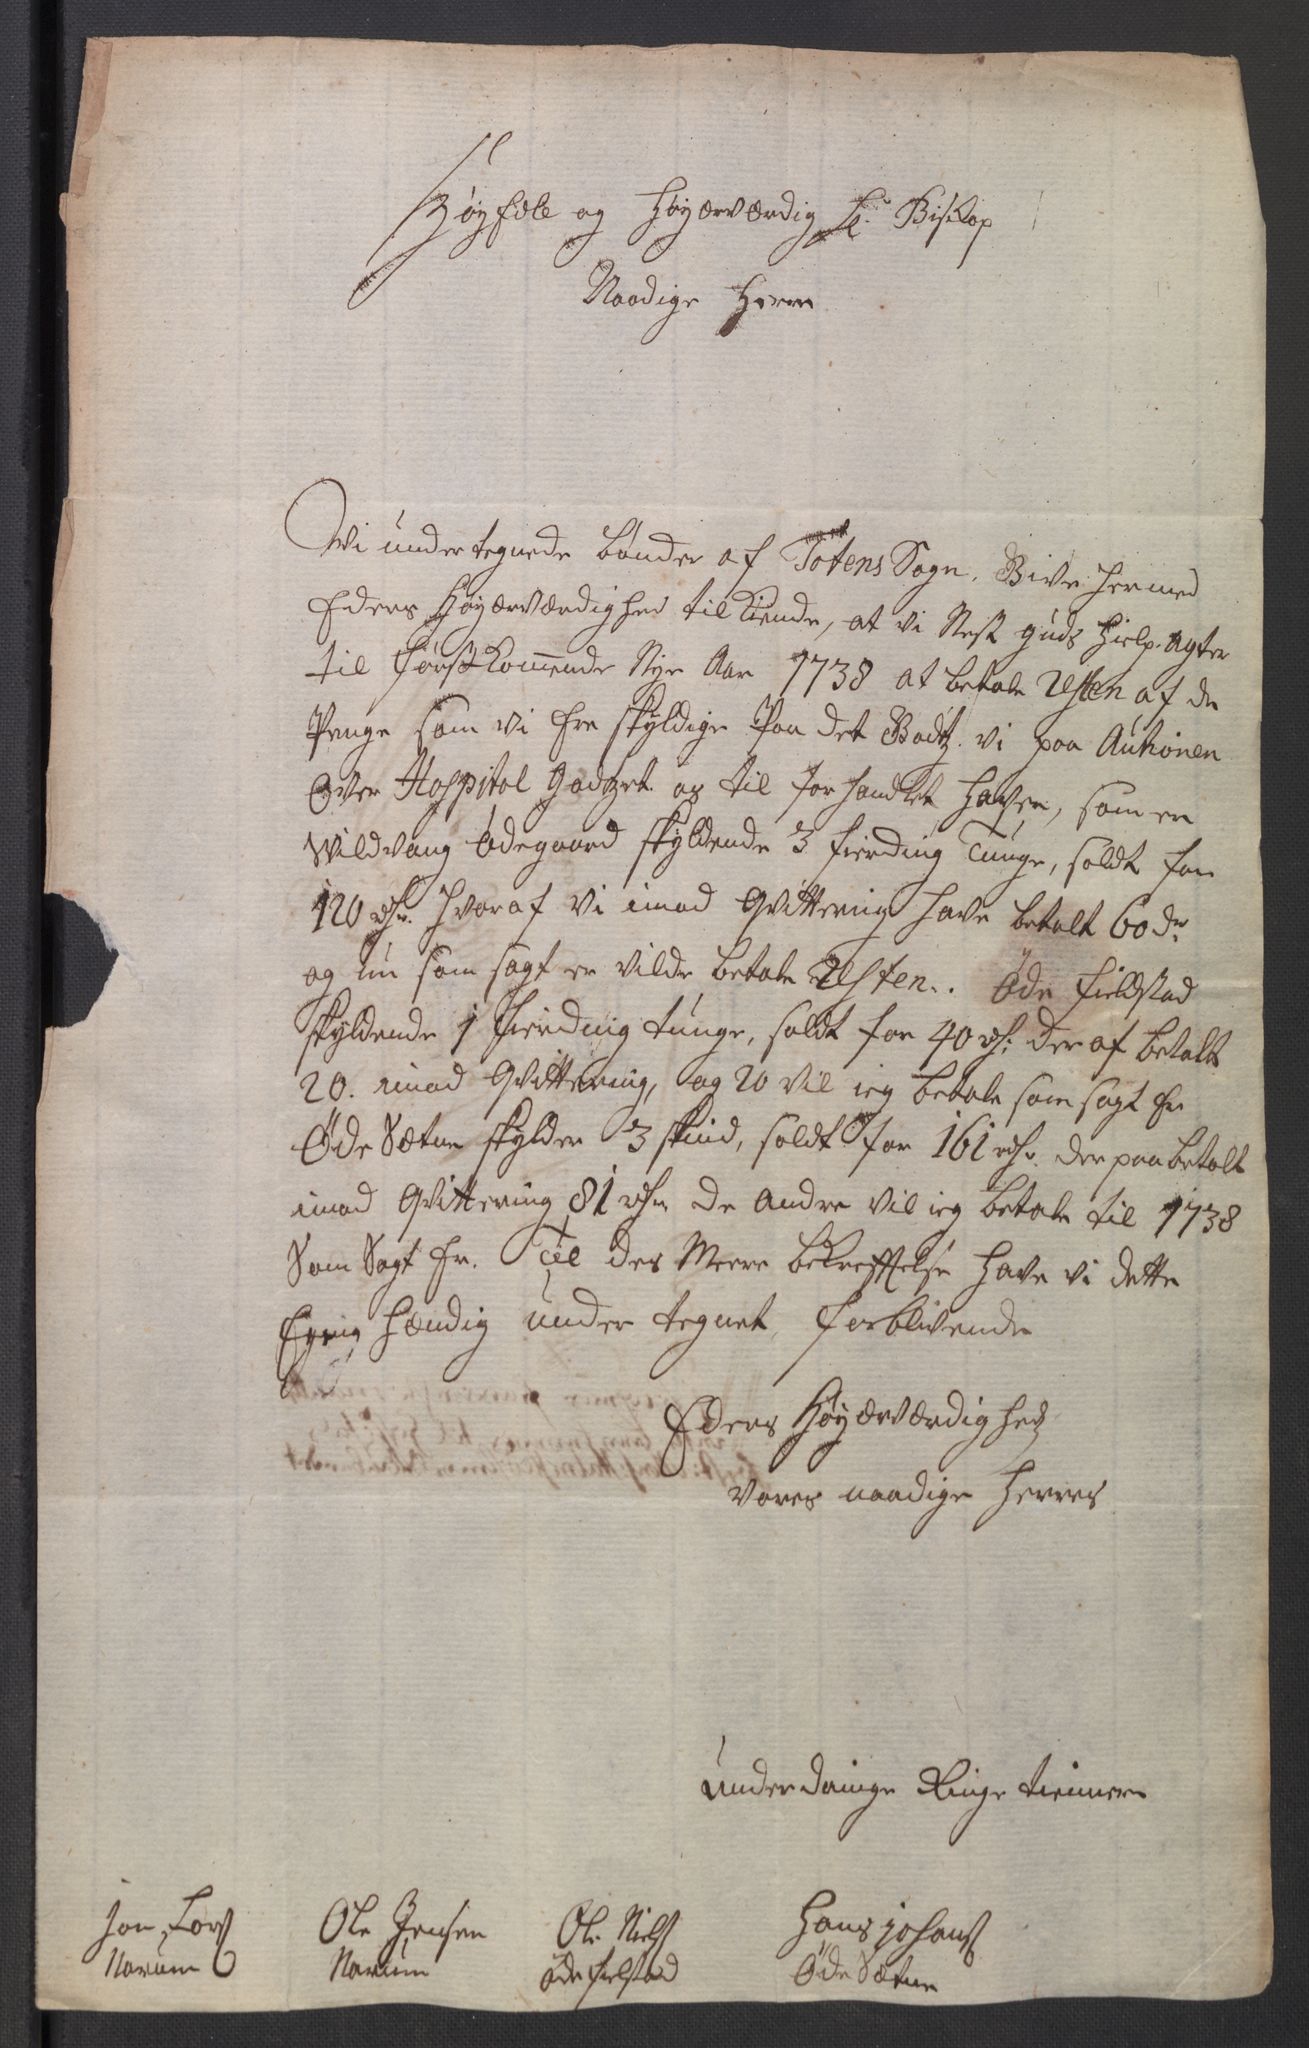 Høyædle og Høyærværdig Hr. Biskop
Naadige Herre
Wi under tegnede bønder af Totens Sogn. Give hermed
Eders Høyærværdighed tilkiende, at vi Nest guds hielp. agter
til førstkommende Nye Aar 1738 at betale Resten af de
Penge som vi ere skyldige Paa det Godtz. vi paa Auctionen
Over Hospital Godtzet. os til forhandlet haver, som er
Wildvang ødegaard skyldende 3 fierding Tunge, soldt for
120 rdr. hvoraf vi imod Qvittering have betalt 60 dr
og nu som sagt er vilde betale Resten. Øde Fieldstad
skyldende 1 fierding tunge, soldt for 40 rdr. der af betalt
20. imod Qvittering, og 20 vil ieg betale som sagt er
Øde Sætre skylder 3 skind, soldt for 161 rdr. der paa betalt
imod Qvittering 81 rdr De Andre vil ieg betale til 1738
Som Sagt Er. Til des Meere bekræftelse have vi dette
Egen hændig under tegnet, forblivende
Eders Høyærværdigheds
Vores naadige Herres
underdanige Ringe tienere
Jon Lars Ole Jensen Ole Niels Hans johans
Narum Narum øde fielstad Øde Sætre